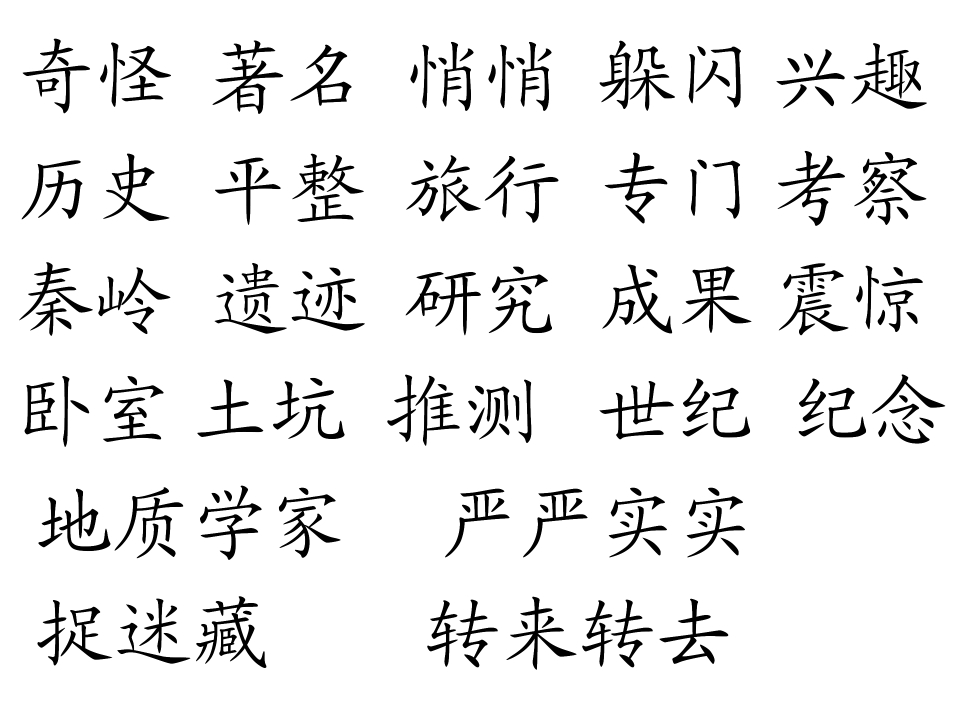 奇怪 著名 悄悄 躲闪 兴趣
历史 平整 旅行 专门 考察
秦岭 遗迹 研究 成果 震惊
卧室 土坑 推测 世纪 纪念
地质学家 严严实实
捉迷藏 转来转去